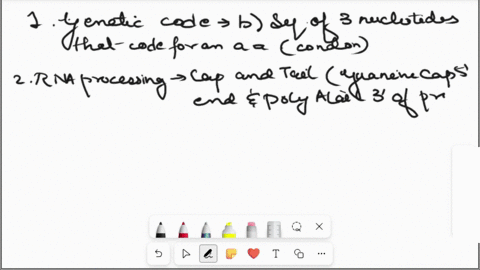 1. Genetic code → b) Seq of 3 nucleotides
that code for an a a (condon)
2. RNA processing → Cap and Tail (guanine Cap 5'
end & poly A tail 3' of pr
T